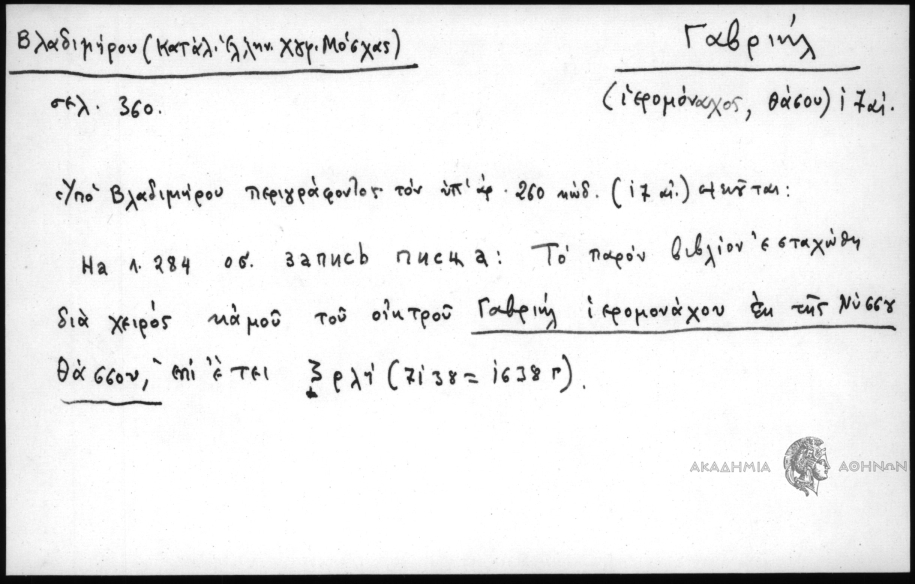 Βλαδιμήρου (Κατάλ. Ἑλλην. Χγρ. Μόσχας)
Γαβριήλ
σελ. 360.
(ἱερομόναχος, Θάσου) i7 αἰ.
Ὑπὸ Βλαδιμήρου περιγράφοντος τὸν ὑπ' ἀρ. 260 κώδ. (i7 αἰ.)
На л. 284 об. запись писца: Τὸ παρόν βιβλίον ἐσταχώθη
διὰ χειρός κἀμοῦ τοῦ οἰκτροῦ Γαβριήλ ἱερομονάχου ἐκ τῆς Νύσσου
Θάσσου, ἐπὶ ἔτει ͵ζρλή (7i38 = i638 г).
ΑΚΑΔΗΜΙΑ ΑΘΗΝΩΝ